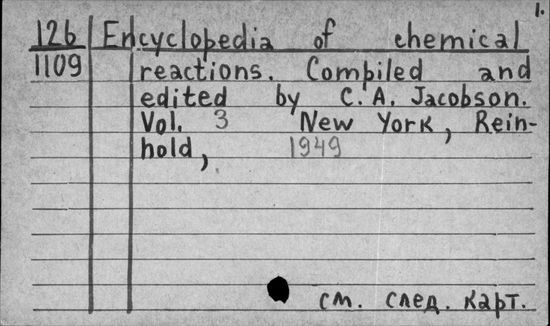 1.
126 Encyclopedia of chemical
1109 reactions. Compiled and
edited by C. A. Jacobson.
Vol. 3 New York, Rein-
hold, 1949
см. след. карт.